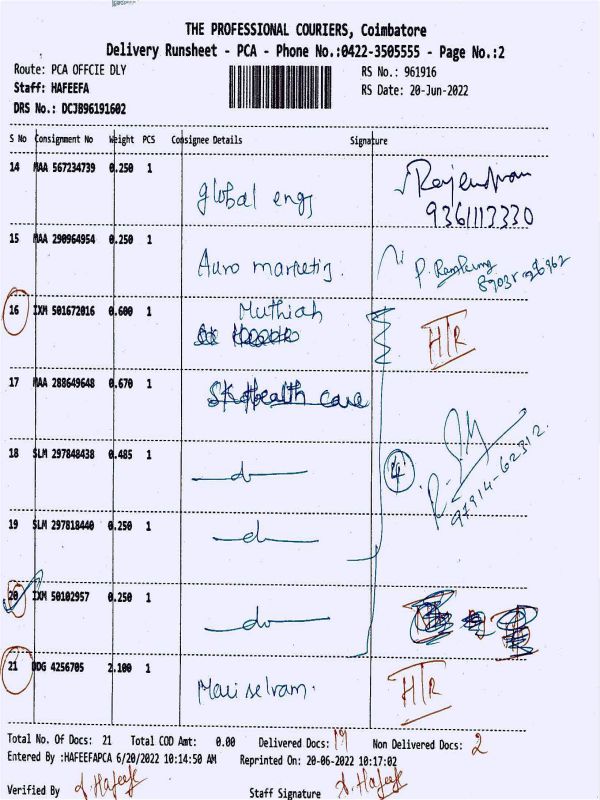 THE PROFESSIONAL COURIERS, Coimbatore
Delivery Runsheet - PCA - Phone No.:0422-3505555 - Page No.:2
Route: PCA OFFCIE DLY RS No.: 961916
Staff: HAFEEFA RS Date: 20-Jun-2022
DRS No.: DCJB96191602
S No Consignment No Weight PCS Consignee Details Signature
14 MAA 567234739 0.250 1 Global engg Rajendran
9361113330
15 MAA 290964954 0.250 1 Auro marketig.
16 IXM 501672016 0.600 1 Muthiah HTR
17 MAA 288649648 0.670 1 SK Health care
18 SLM 297848438 0.485 1 do 4 97914-62312.
19 SLM 297818440 0.250 1 do
20 IXM 50102957 0.250 1 do
21 DDG 4256705 2.100 1 Mariselvam. HTR
Total No. Of Docs: 21 Total COD Amt: 0.00 Delivered Docs: 19 Non Delivered Docs: 2
Entered By :HAFEEFAPCA 6/20/2022 10:14:50 AM Reprinted On: 20-06-2022 10:17:02
Verified By A. Hafeefa Staff Signature A. Hafeefa